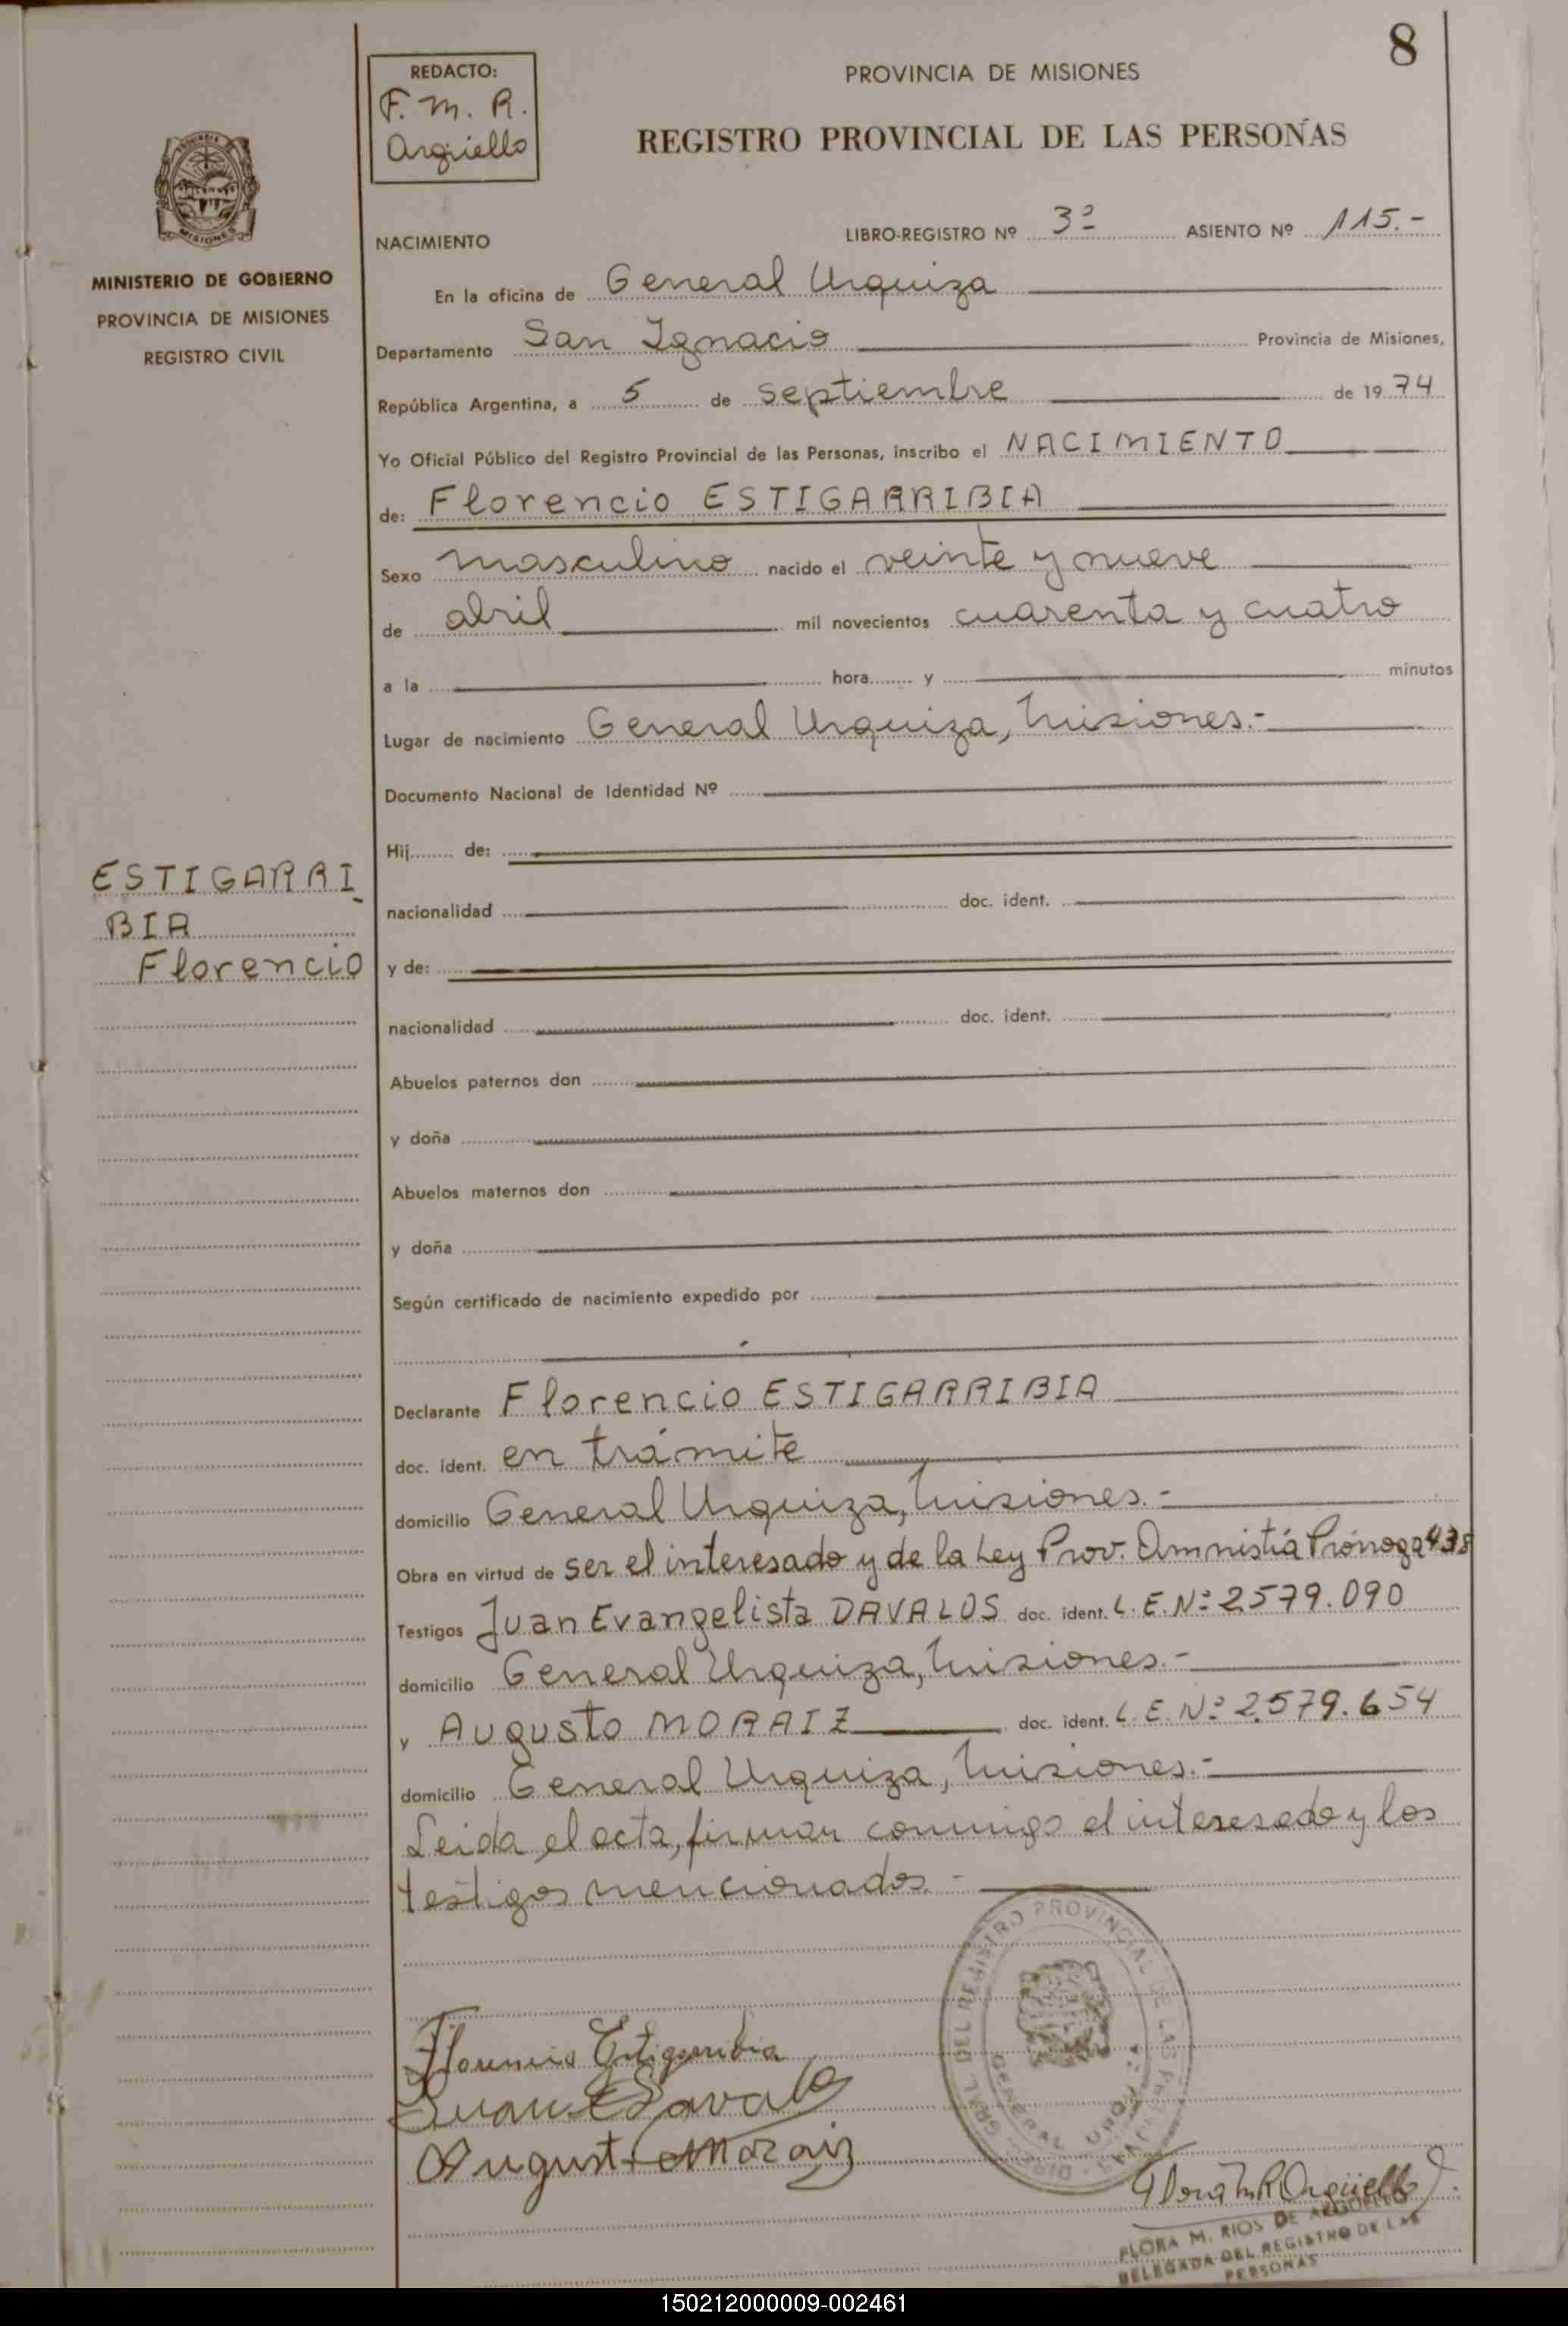 8
REDACTO:
F. M. R.
Argüello
PROVINCIA DE MISIONES
REGISTRO PROVINCIAL DE LAS PERSONAS
MISIONES
MINISTERIO DE GOBIERNO
PROVINCIA DE MISIONES
REGISTRO CIVIL
NACIMIENTO
LIBRO-REGISTRO Nº 3º ASIENTO Nº 115.-
En la oficina de General Urquiza
Departamento San Ignacio Provincia de Misiones,
República Argentina, a 5 de septiembre de 1974
Yo Oficial Público del Registro Provincial de las Personas, inscribo el NACIMIENTO
de: Florencio ESTIGARRIBIA
Sexo masculino nacido el veinte y nueve
de abril mil novecientos cuarenta y cuatro
a la hora y minutos
Lugar de nacimiento General Urquiza, Misiones.-
Documento Nacional de Identidad Nº
Hij de:
ESTIGARRI
BIA
Florencio
nacionalidad doc. ident.
y de:
nacionalidad doc. ident.
Abuelos paternos don
y doña
Abuelos maternos don
y doña
Según certificado de nacimiento expedido por
Declarante Florencio ESTIGARRIBIA
doc. ident. en trámite
domicilio General Urquiza, Misiones.-
Obra en virtud de ser el interesado y de la Ley Prov. Amnistía Prórroga 438
Testigos Juan Evangelista DAVALOS doc. ident. L.E.Nº 2.579.090
domicilio General Urquiza, Misiones.-
y Augusto MORAIZ doc. ident. L.E.Nº 2.579.654
domicilio General Urquiza, Misiones.-
Leida el acta, firman conmigo el interesado y los
testigos mencionados.-
DIREC. GRAL. DEL REGISTRO PROVINCIAL DE LAS PERSONAS
GENERAL URQUIZA
Florencio Estigarribia
Juan E Davalo
Augusto Moraiz
Flora M R Argüello
FLORA M. RIOS DE ARGUELLO
DELEGADA DEL REGISTRO DE LAS
PERSONAS
150212000009-002461